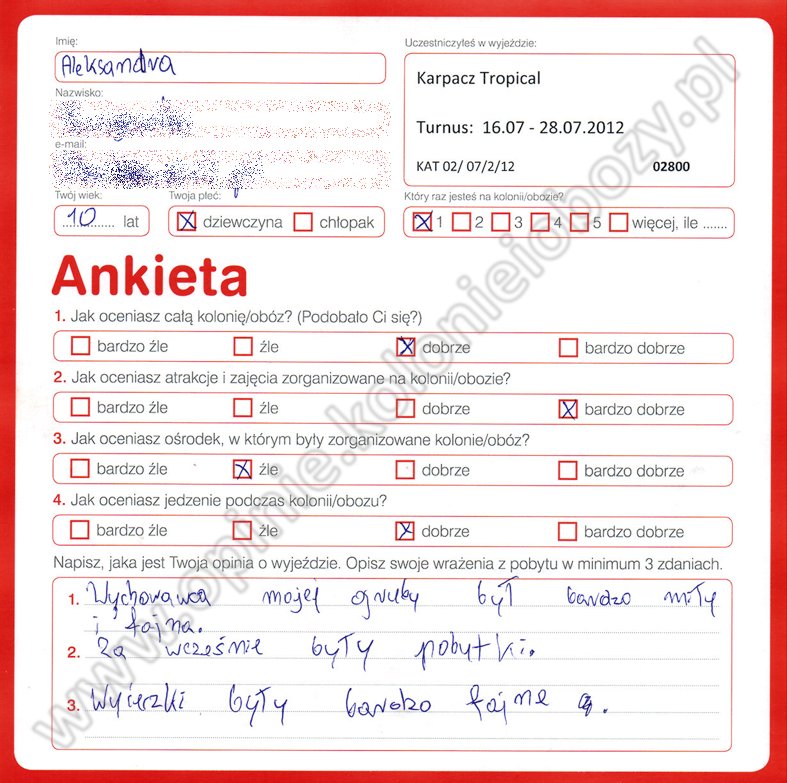 Imię:
Aleksandra
Nazwisko:
e-mail:
Twój wiek:
10 lat
Twoja płeć:
dziewczyna chłopak
Uczestniczyłeś w wyjeździe:
Karpacz Tropical
Turnus: 16.07 - 28.07.2012
KAT 02/ 07/2/12 02800
Który raz jesteś na kolonii/obozie?
1 2 3 4 5 więcej, ile .......
Ankieta
1. Jak oceniasz całą kolonię/obóz? (Podobało Ci się?)
bardzo źle źle dobrze bardzo dobrze
2. Jak oceniasz atrakcje i zajęcia zorganizowane na kolonii/obozie?
bardzo źle źle dobrze bardzo dobrze
3. Jak oceniasz ośrodek, w którym były zorganizowane kolonie/obóz?
bardzo źle źle dobrze bardzo dobrze
4. Jak oceniasz jedzenie podczas kolonii/obozu?
bardzo źle źle dobrze bardzo dobrze
Napisz, jaka jest Twoja opinia o wyjeździe. Opisz swoje wrażenia z pobytu w minimum 3 zdaniach.
1. Wychowawca mojej gruby był bardzo miły
i fajna.
2. Za wcześnie były pobytki.
3. Wycierzki były bardzo fajne.
www.opinie.kolonieiobozy.pl